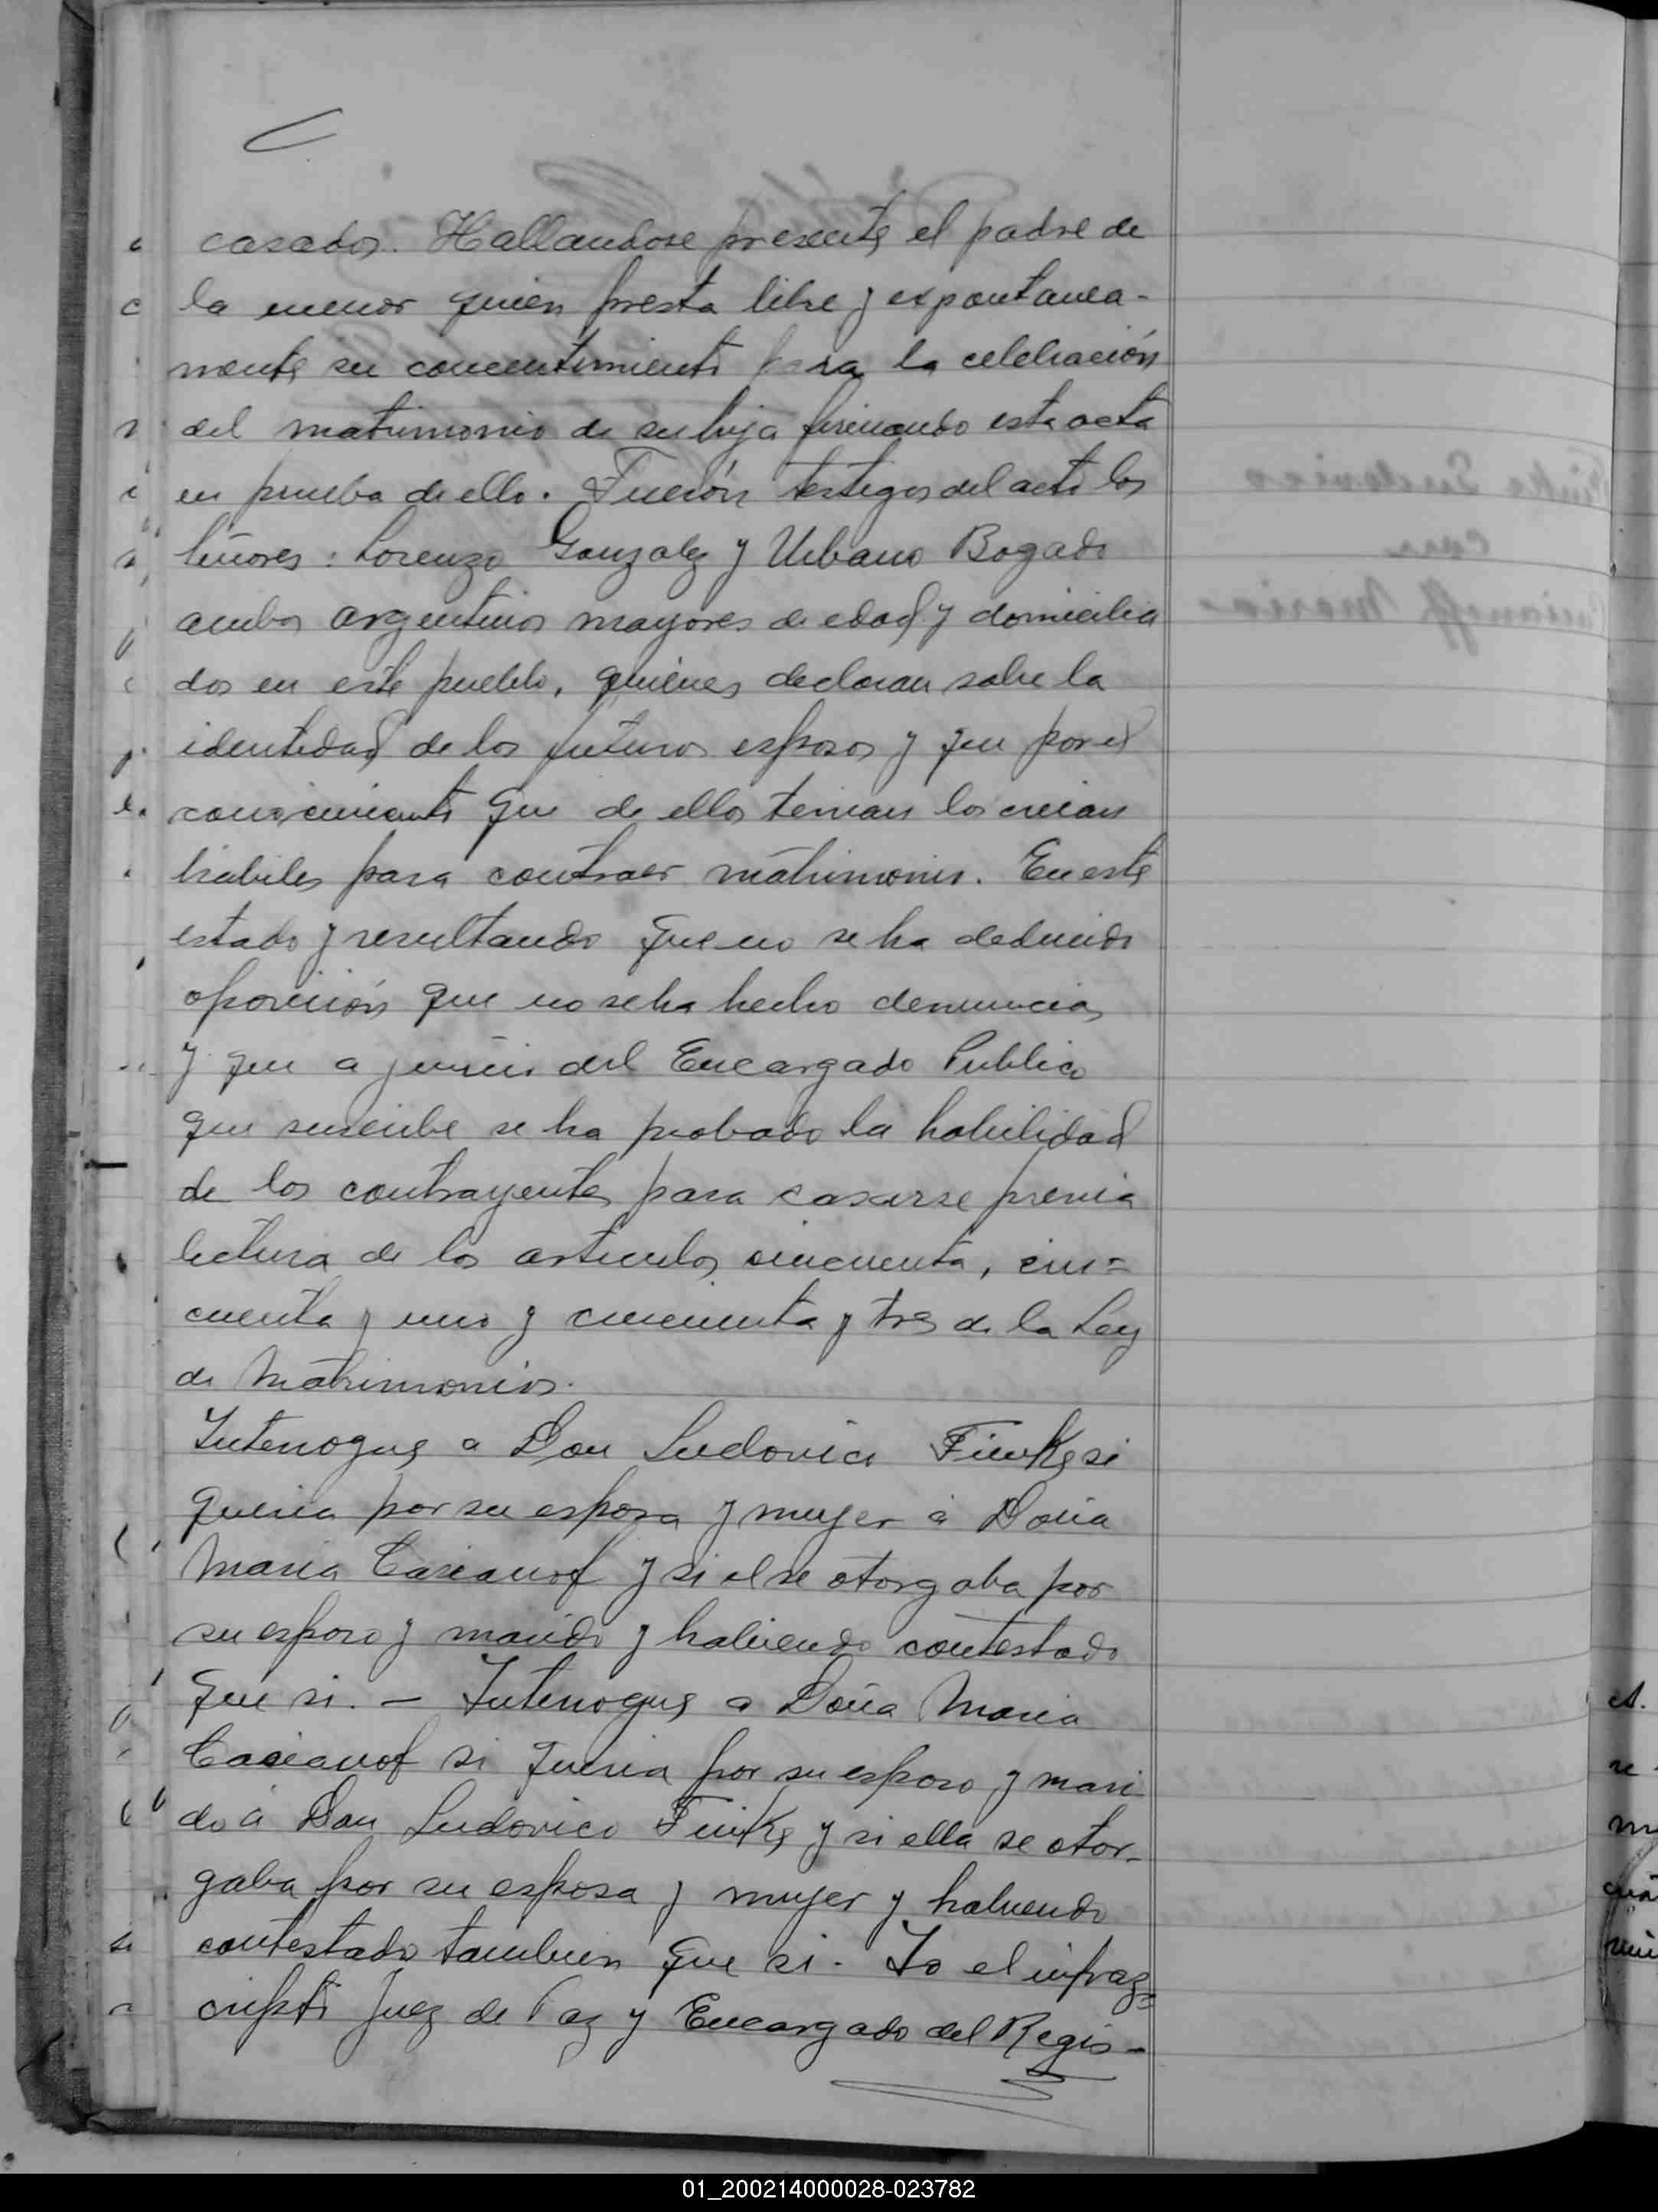 casados. Hallandose presente el padre de
la menor quien presta libre y expontanea-
mente su concentimiento para la celebración
del matrimonio de su hija firmando esta acta
en prueba de ello. Fuerón testigos del acto los
Señores: Lorenzo Gonzalez y Urbano Bogado
ambos argentinos mayores de edad y domicilia
dos en este pueblo, quienes declaran sobre la
identidad de los futuros esposos y que por el
conocimiento que de ellos tenian los creian
habiles para contraer matrimonio. En este
estado y resultando que no se ha deducido
oposición que no se ha hecho denuncia
y que a juicio del Encargado Publico
que suscribe se ha probado la habilidad
de los contrayentes para casarse previa
lectura de los articulos cincuenta, cin=
cuenta y uno y cincuenta y tres de la Ley
de Matrimonios.
Interrogue a Don Ludovico Finke si
queria por su esposa y mujer a Doña
Maria Casianof y si el se otorgaba por
su esposo y marido y habiendo contestado
que si. — Interrogue a Doña Maria
Casianof si queria por su esposo y mari
do a Don Ludovico Finke y si ella se otor-
gaba por su esposa y mujer y habiendo
contestado tambien que si. Yo el infraz=
cripto Juez de Paz y Encargado del Regis-
01_200214000028-023782